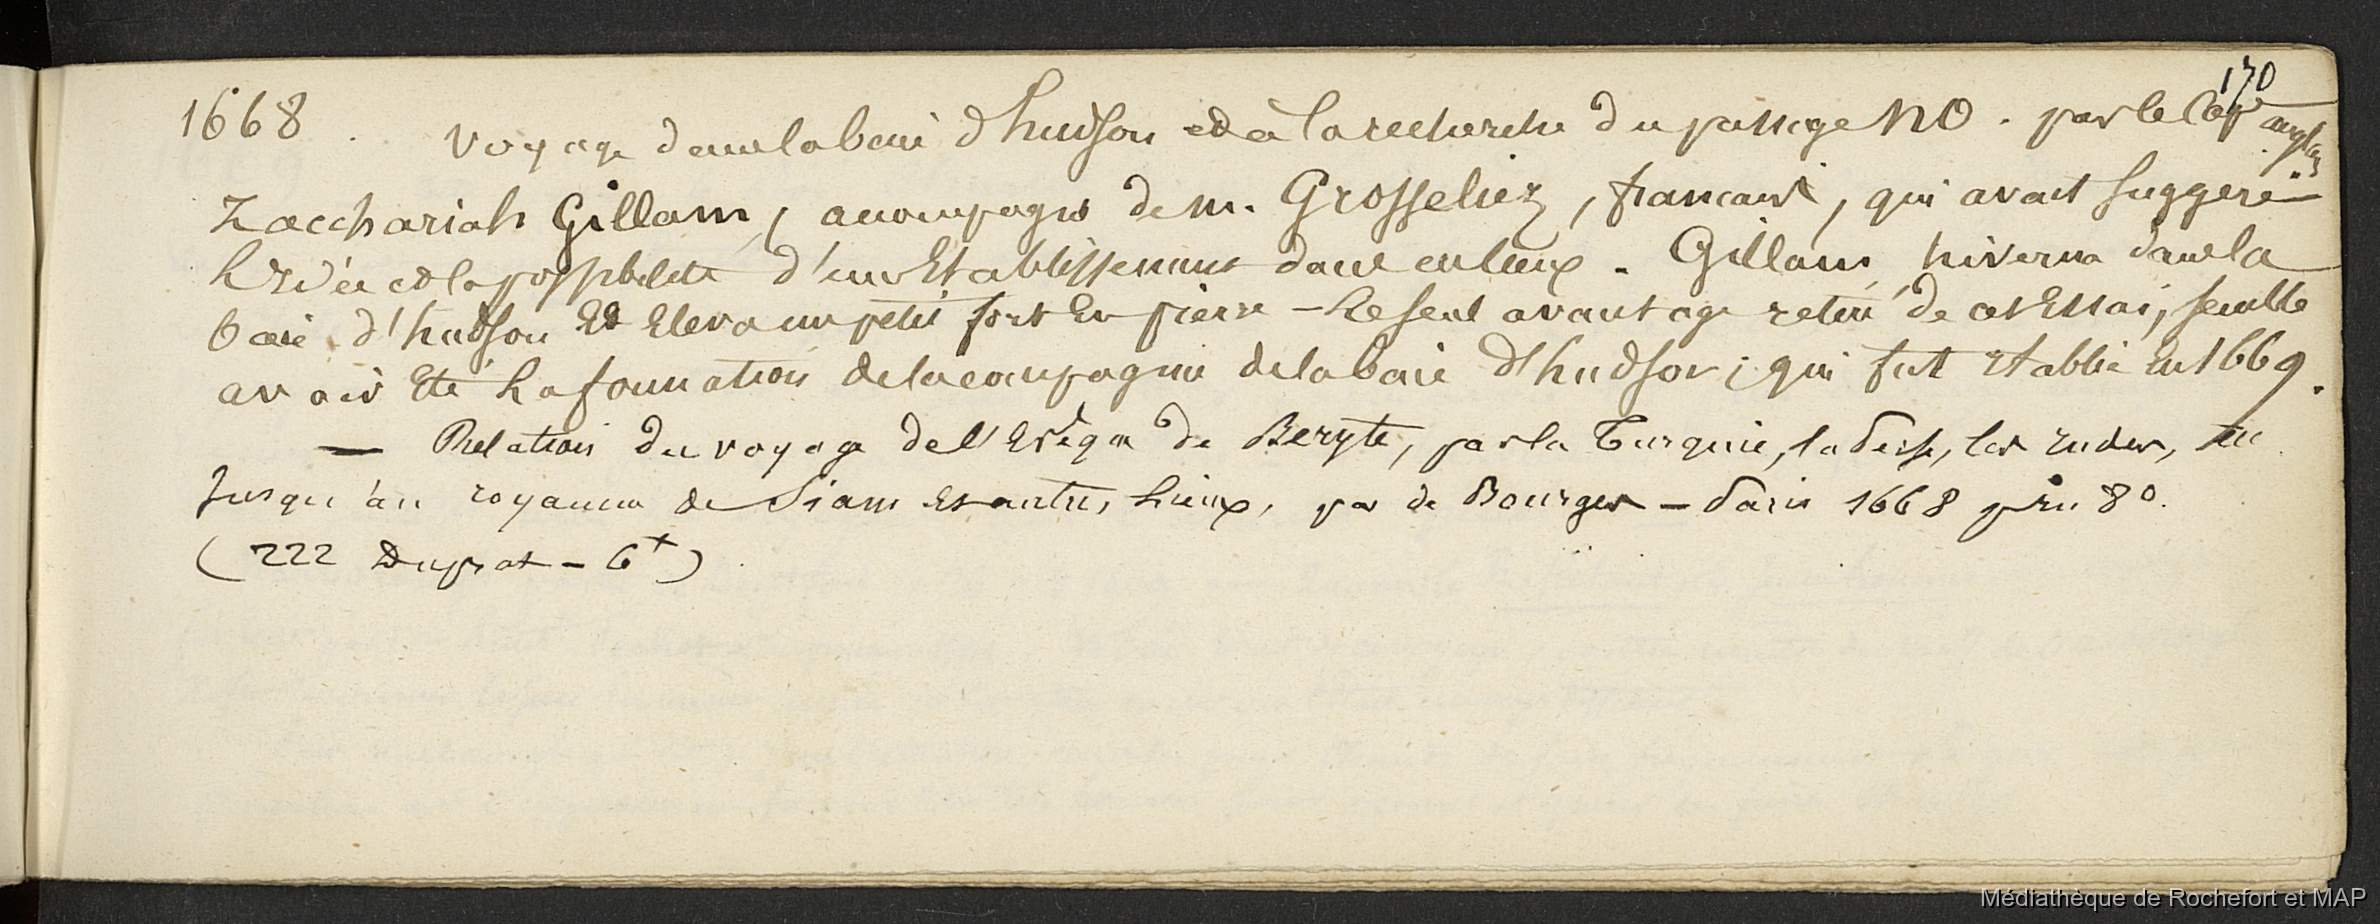 170
1668. Voyage dans la baie d'hudson et à la recherche du passage NO. par le Cap anglais
Zacchariah Gillam, accompagné de m. Grosseliez, français, qui avait suggeré
l'idée et la possibilité d'un Etablissement dans ces lieux. Gillam hiverna dans la
baie d'hudson Et Eleva un petit fort En pierre - Le seul avantage retiré de cet Essai, semble
avoir Eté La formation de la compagnie de la baie d'hudson; qui fut Etablie En 1669.
— Relation du voyage de l'Evêque de Beryte, par la Turquie, la Perse, les Indes, etc
Jusqu'au royaume de Siam Et autres Lieux, par de Bourges - Paris 1668 p. in 8º.
(222 Duprat - 6+)
Médiathèque de Rochefort et MAP